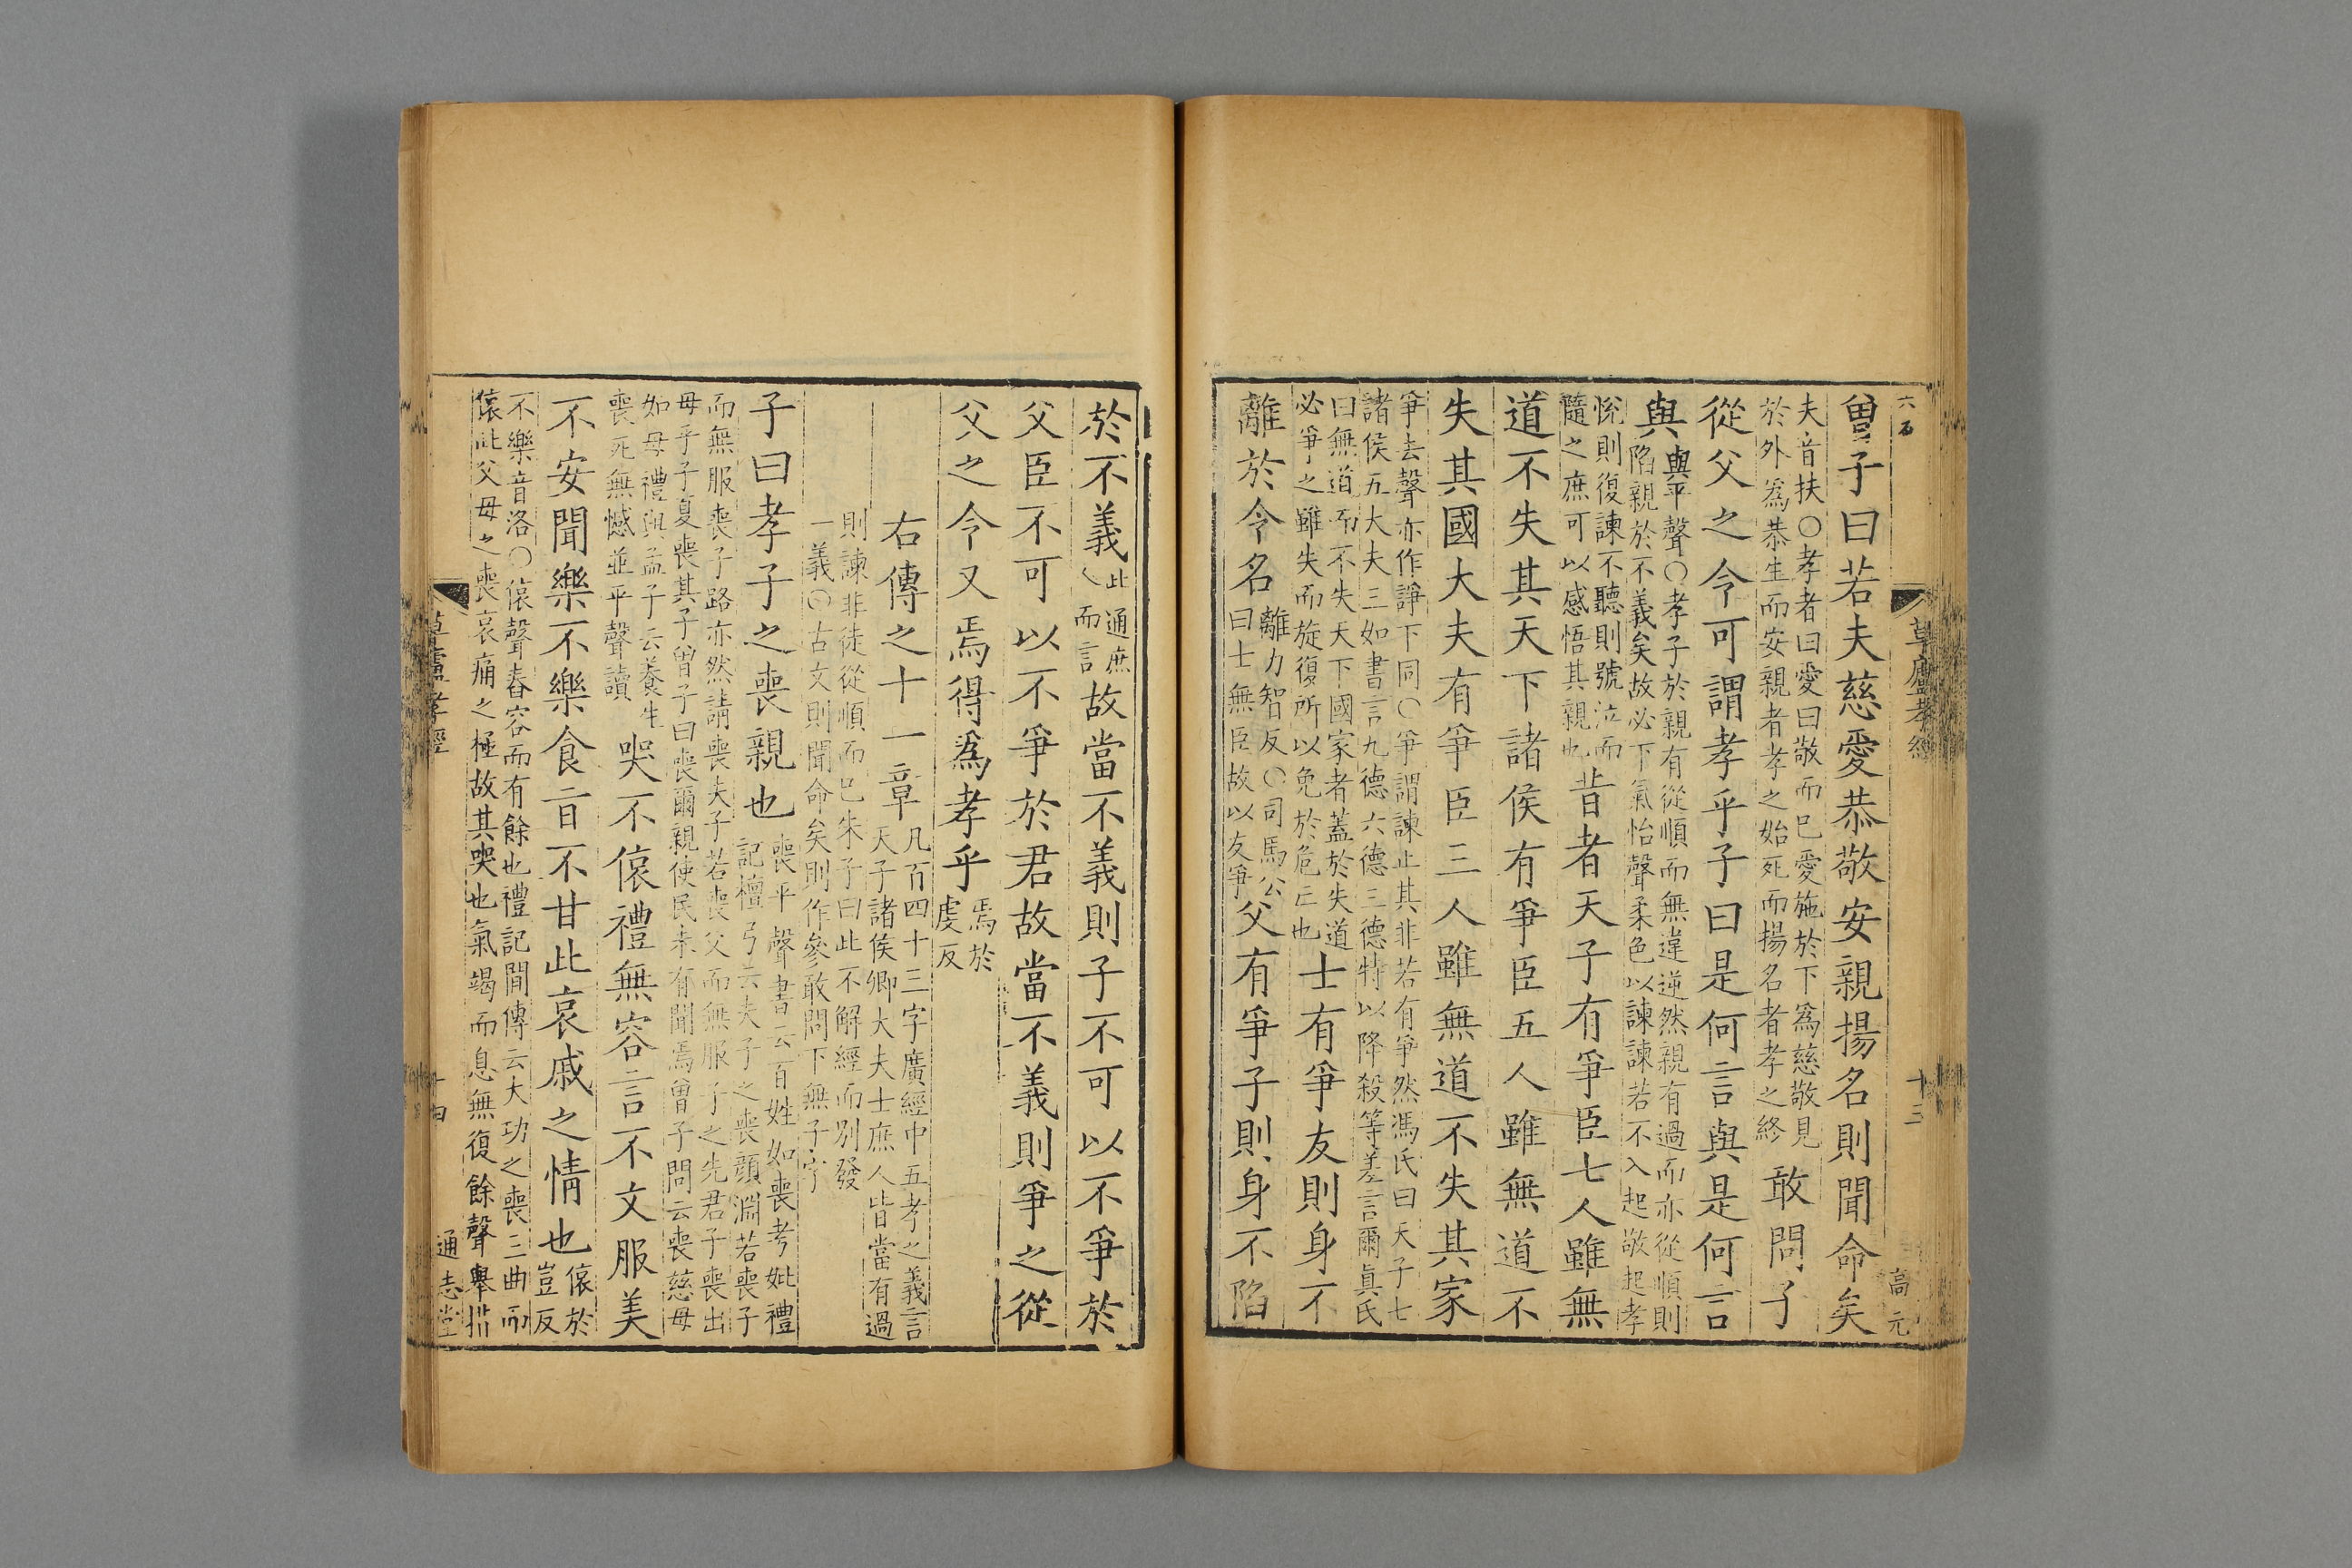 曾子曰若夫慈愛恭敬安親揚名則聞命矣
夫音扶○孝者曰愛曰敬而已愛施於下為慈敬見
於外為恭生而安親者孝之始死而揚名者孝之終
敢問子
從父之令可謂孝乎子曰是何言與是何言
與
與平聲○孝子於親有從順而無違逆然親有過而亦從順則
陷親於不義矣故必下氣怡聲柔色以諫諫若不入起敬起孝
悅則復諫不聽則號泣而
隨之庶可以感悟其親也
昔者天子有爭臣七人雖無
道不失其天下諸侯有爭臣五人雖無道不
失其國大夫有爭臣三人雖無道不失其家
爭去聲亦作諍下同○爭謂諫止其非若有爭然馮氏曰天子七
諸侯五大夫三如書言九德六德三德特以降殺等差言爾真氏
曰無道而不失天下國家者蓋於失道
必爭之雖失而旋復所以免於危亡也
士有爭友則身不
離於令名
離力智反○司馬公
曰士無臣故以友爭
父有爭子則身不陷
草廬孝經
十三
高元
於不義
此通庶
人而言
故當不義則子不可以不爭於
父臣不可以不爭於君故當不義則爭之從
父之令又焉得為孝乎
焉於
虔反
右傳之十一章
凡百四十三字廣經中五孝之義言
天子諸侯卿大夫士庶人皆當有過
則諫非徒從順而已朱子曰此不解經而別發
一義○古文則聞命矣則作參敢問下無子字
子曰孝子之喪親也
喪平聲書云百姓如喪考妣禮
記檀弓云夫子之喪顏淵若喪子
而無服喪子路亦然請喪夫子若喪父而無服子之先君子喪出
母乎子夏喪其子曾子曰喪爾親使民未有聞焉曾子問云喪慈母
如母禮與孟子云養生
喪死無憾並平聲讀
哭不偯禮無容言不文服美
不安聞樂不樂食旨不甘此哀戚之情也
偯於
豈反
不樂音洛○偯聲舂容而有餘也禮記間傳云大功之喪三曲而
偯此父母之喪哀痛之極故其哭也氣竭而息無復餘聲舉措
草廬孝經
十四
通志堂